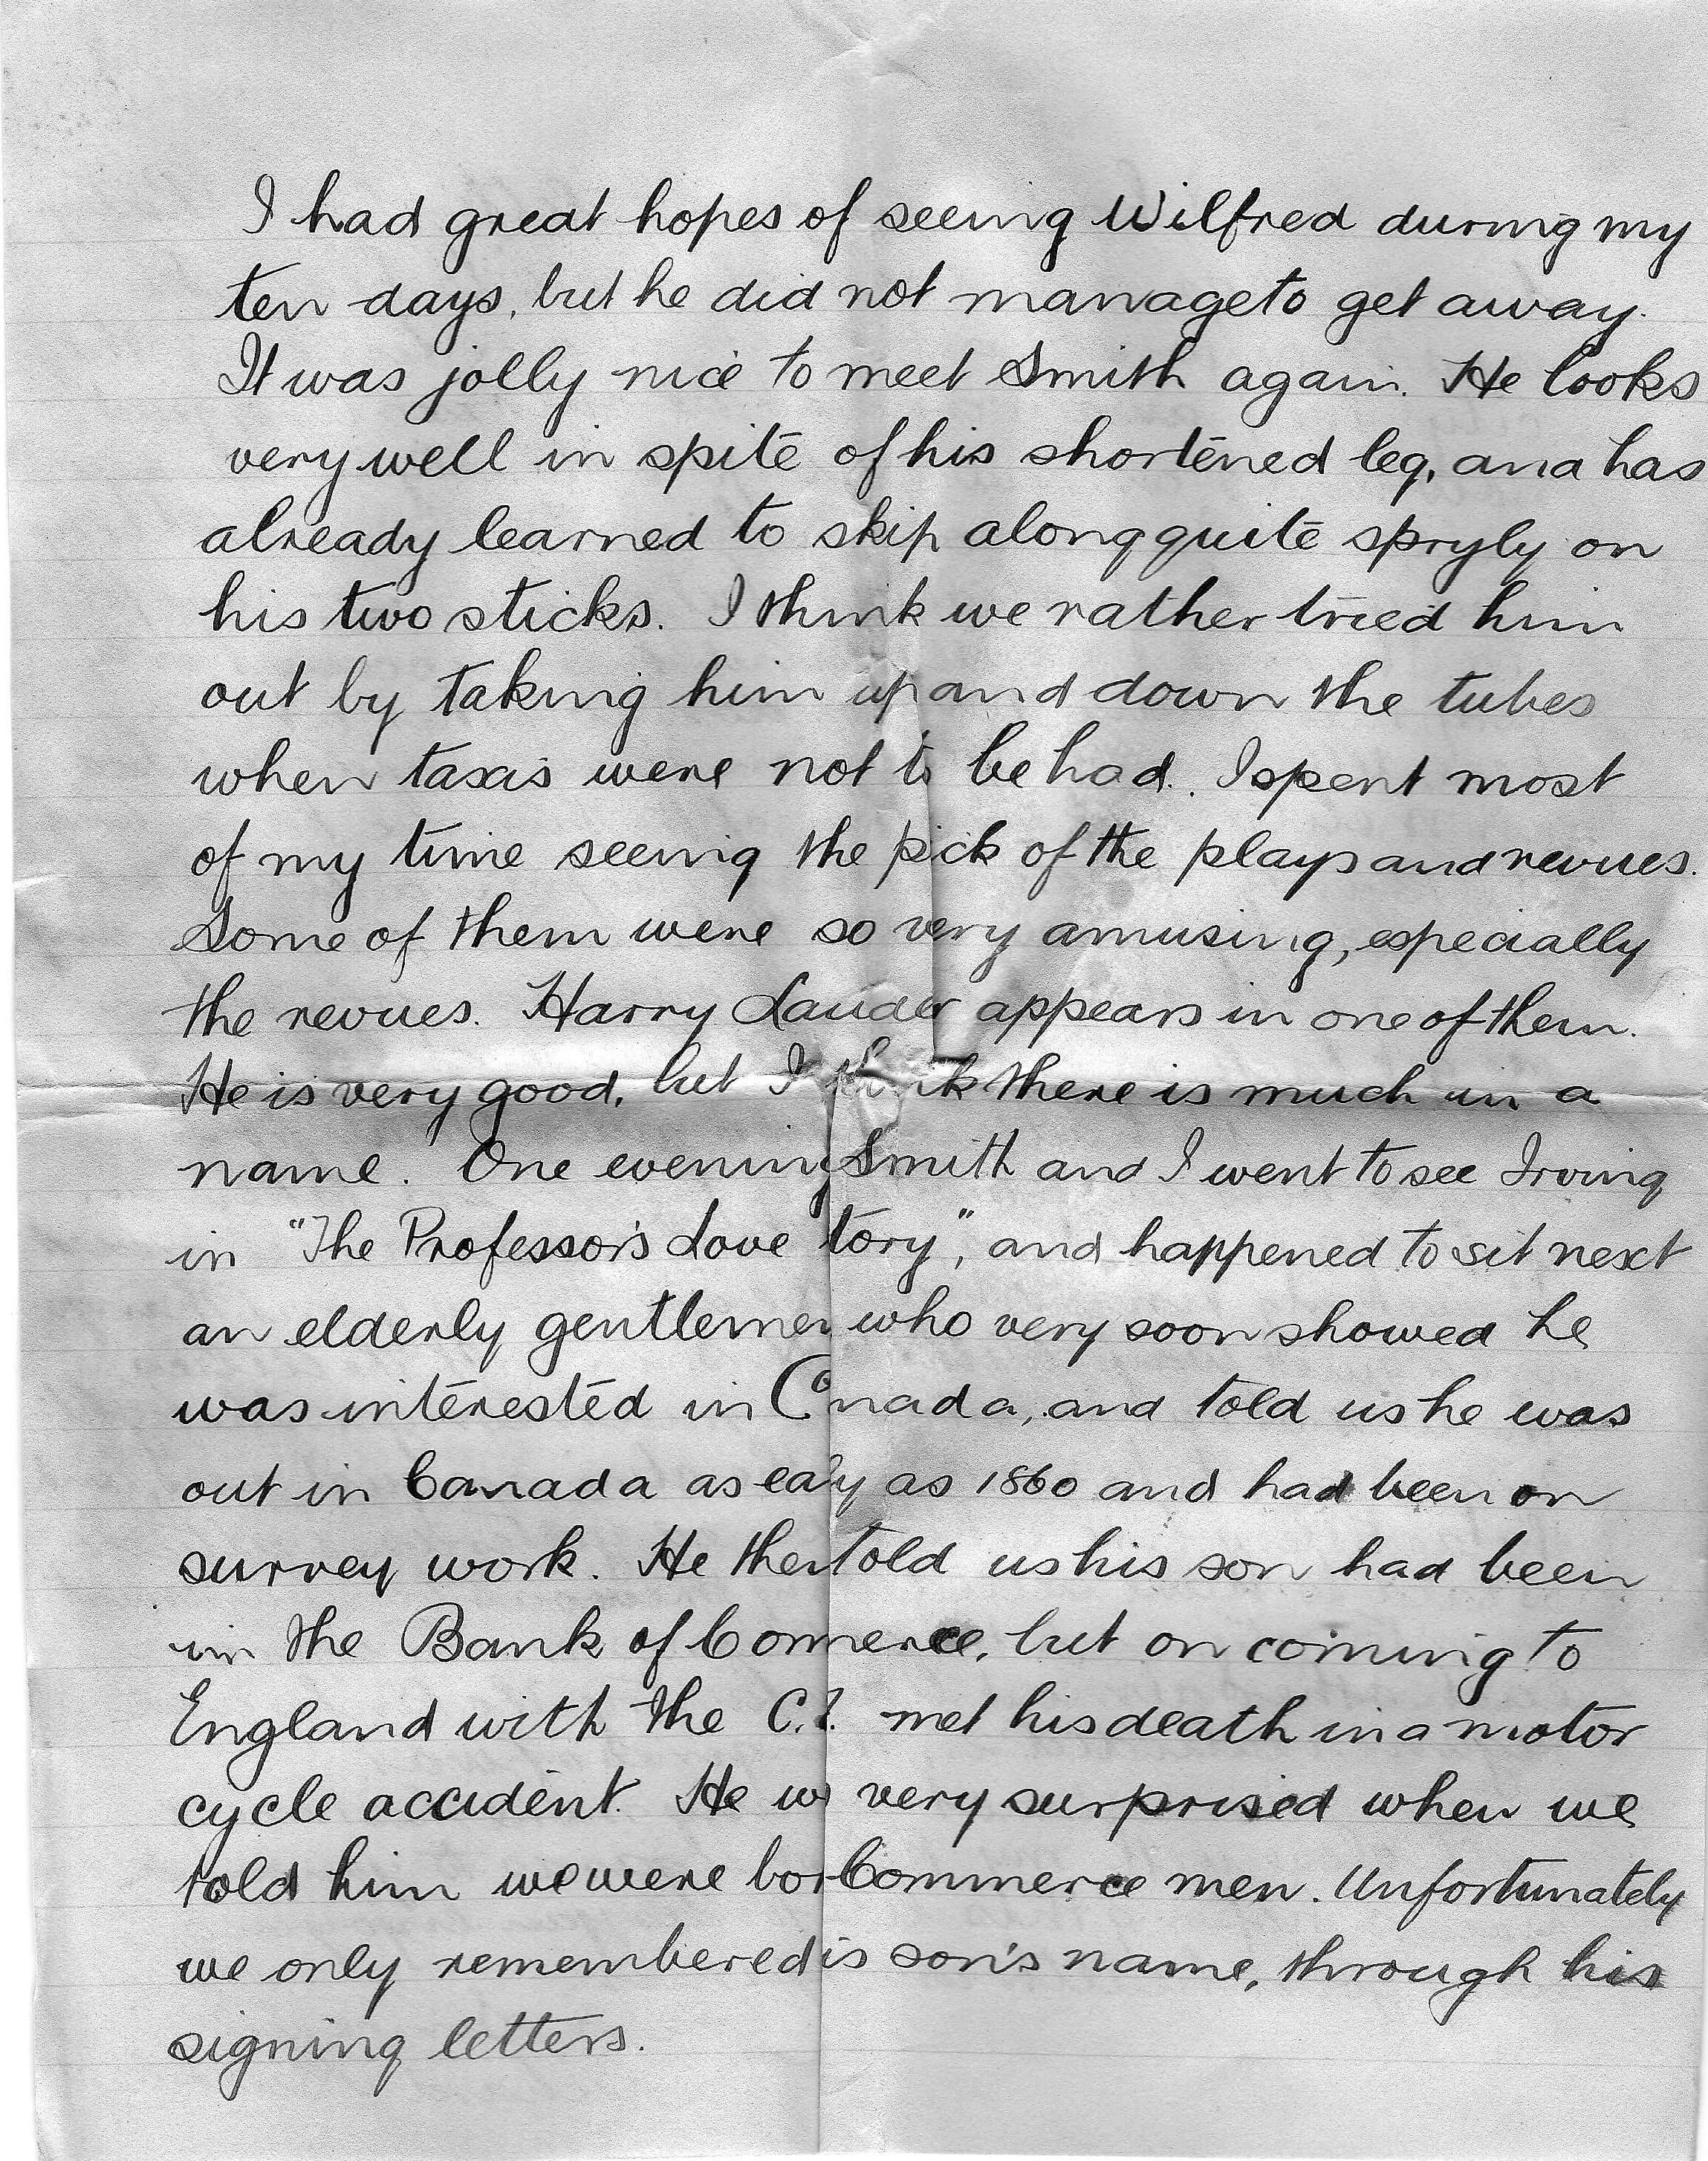 I had great hopes of seeing Wilfred during my
ten days, but he did not manage to get away.
It was jolly nice to meet Smith again. He looks
very well in spite of his shortened leg, and has
already learned to skip along quite spryly on
his two sticks. I think we rather tried him
out by taking him up and down the tubes
when taxis were not to be had. I spent most
of my time seeing the pick of the plays and revues.
Some of them were so very amusing, especially
the revues. Harry Lauder appears in one of them.
He is very good, but I think there is much in a
name. One evening Smith and I went to see Irving
in "The Professor's Love tory", and happened to sit next
an elderly gentlemen who very soon showed he
was interested in Canada, and told us he was
out in Canada as ealy as 1860 and had been on
survey work. He then told us his son had been
in the Bank of Commerce, but on coming to
England with the C. met his death in a motor
cycle accident. He very surprised when we
told him we were Commerce men. Unfortunately
we only remembered is son's name, through his
signing letters.